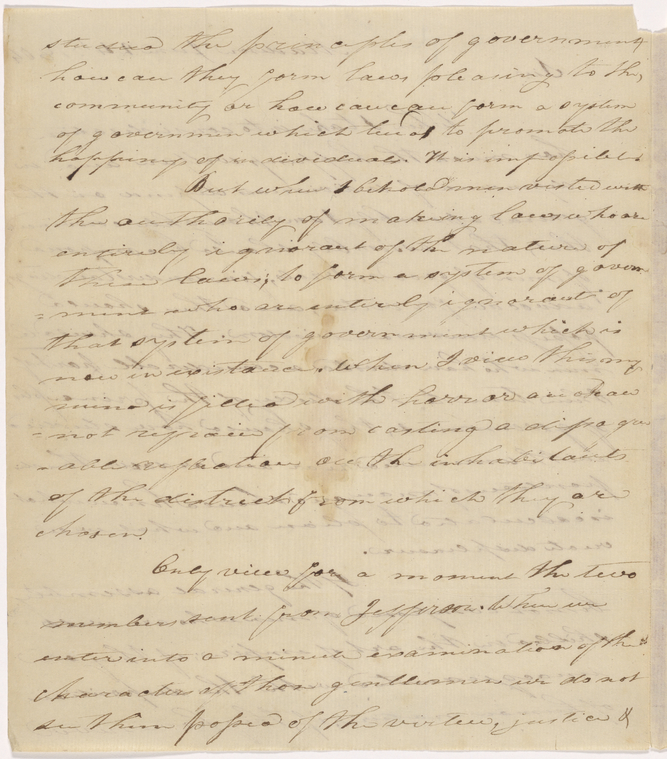 studied the principles of government
how can they form laws pleasing to the
community or how can form a system
of governmen which tends to promote the
happiness of individuals. It is impossible
But when I behold men visted with
the authority of making laws who are
entirely ignorant of the nature of
these laws; to form a system of govern
=ment who are enterly ignorant of
that system of government which is
now in existance. When I view this my
mind is filled with horror and can
=not refrain from casting a disagre
=able reflection on the inhabitants
of the district from which they are
chosen.
Only view for a moment the two
members sent from Jefferson. When we
enter into a minute examination of the
character of those gentlemen we do not
see them possed of the virtue, justice &